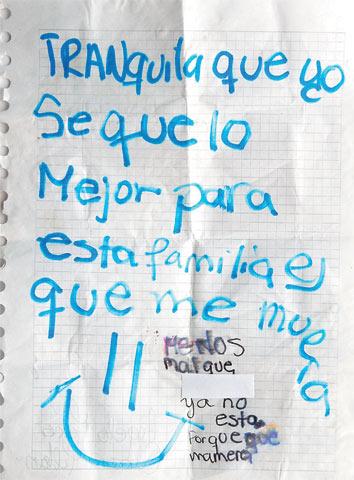 TRANquila que yo
Se que lo
Mejor para
esta familia es
que me muera
MENOS
mal que
ya no
esta
Porque que
mamera